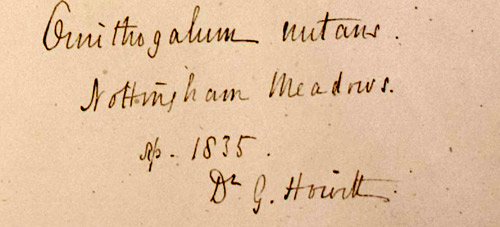 Ornithogalum nutans.
Nottingham Meadows.
Ap. 1835.
Dr G. Howitt.